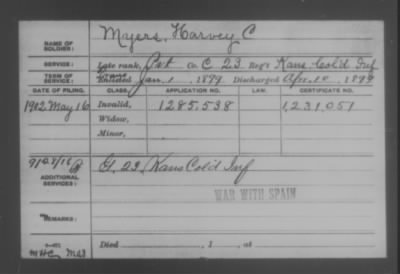 NAME OF SOLDIER: Myers, Harvey C
SERVICE: Late rank, Pvt Co. C, 23 Reg't Kans. Col'd Inf
TERM OF SERVICE: Enlisted Jan. 1, 1899, Discharged Apr. 10, 1899
DATE OF FILING. CLASS. APPLICATION NO. LAW. CERTIFICATE NO.
1902 May 16 Invalid, 1.285.538 1,231,051
Widow,
Minor,
ADDITIONAL SERVICES: G, 23, Kans Cold Inf
WAR WITH SPAIN
REMARKS:
Died , 1 , at